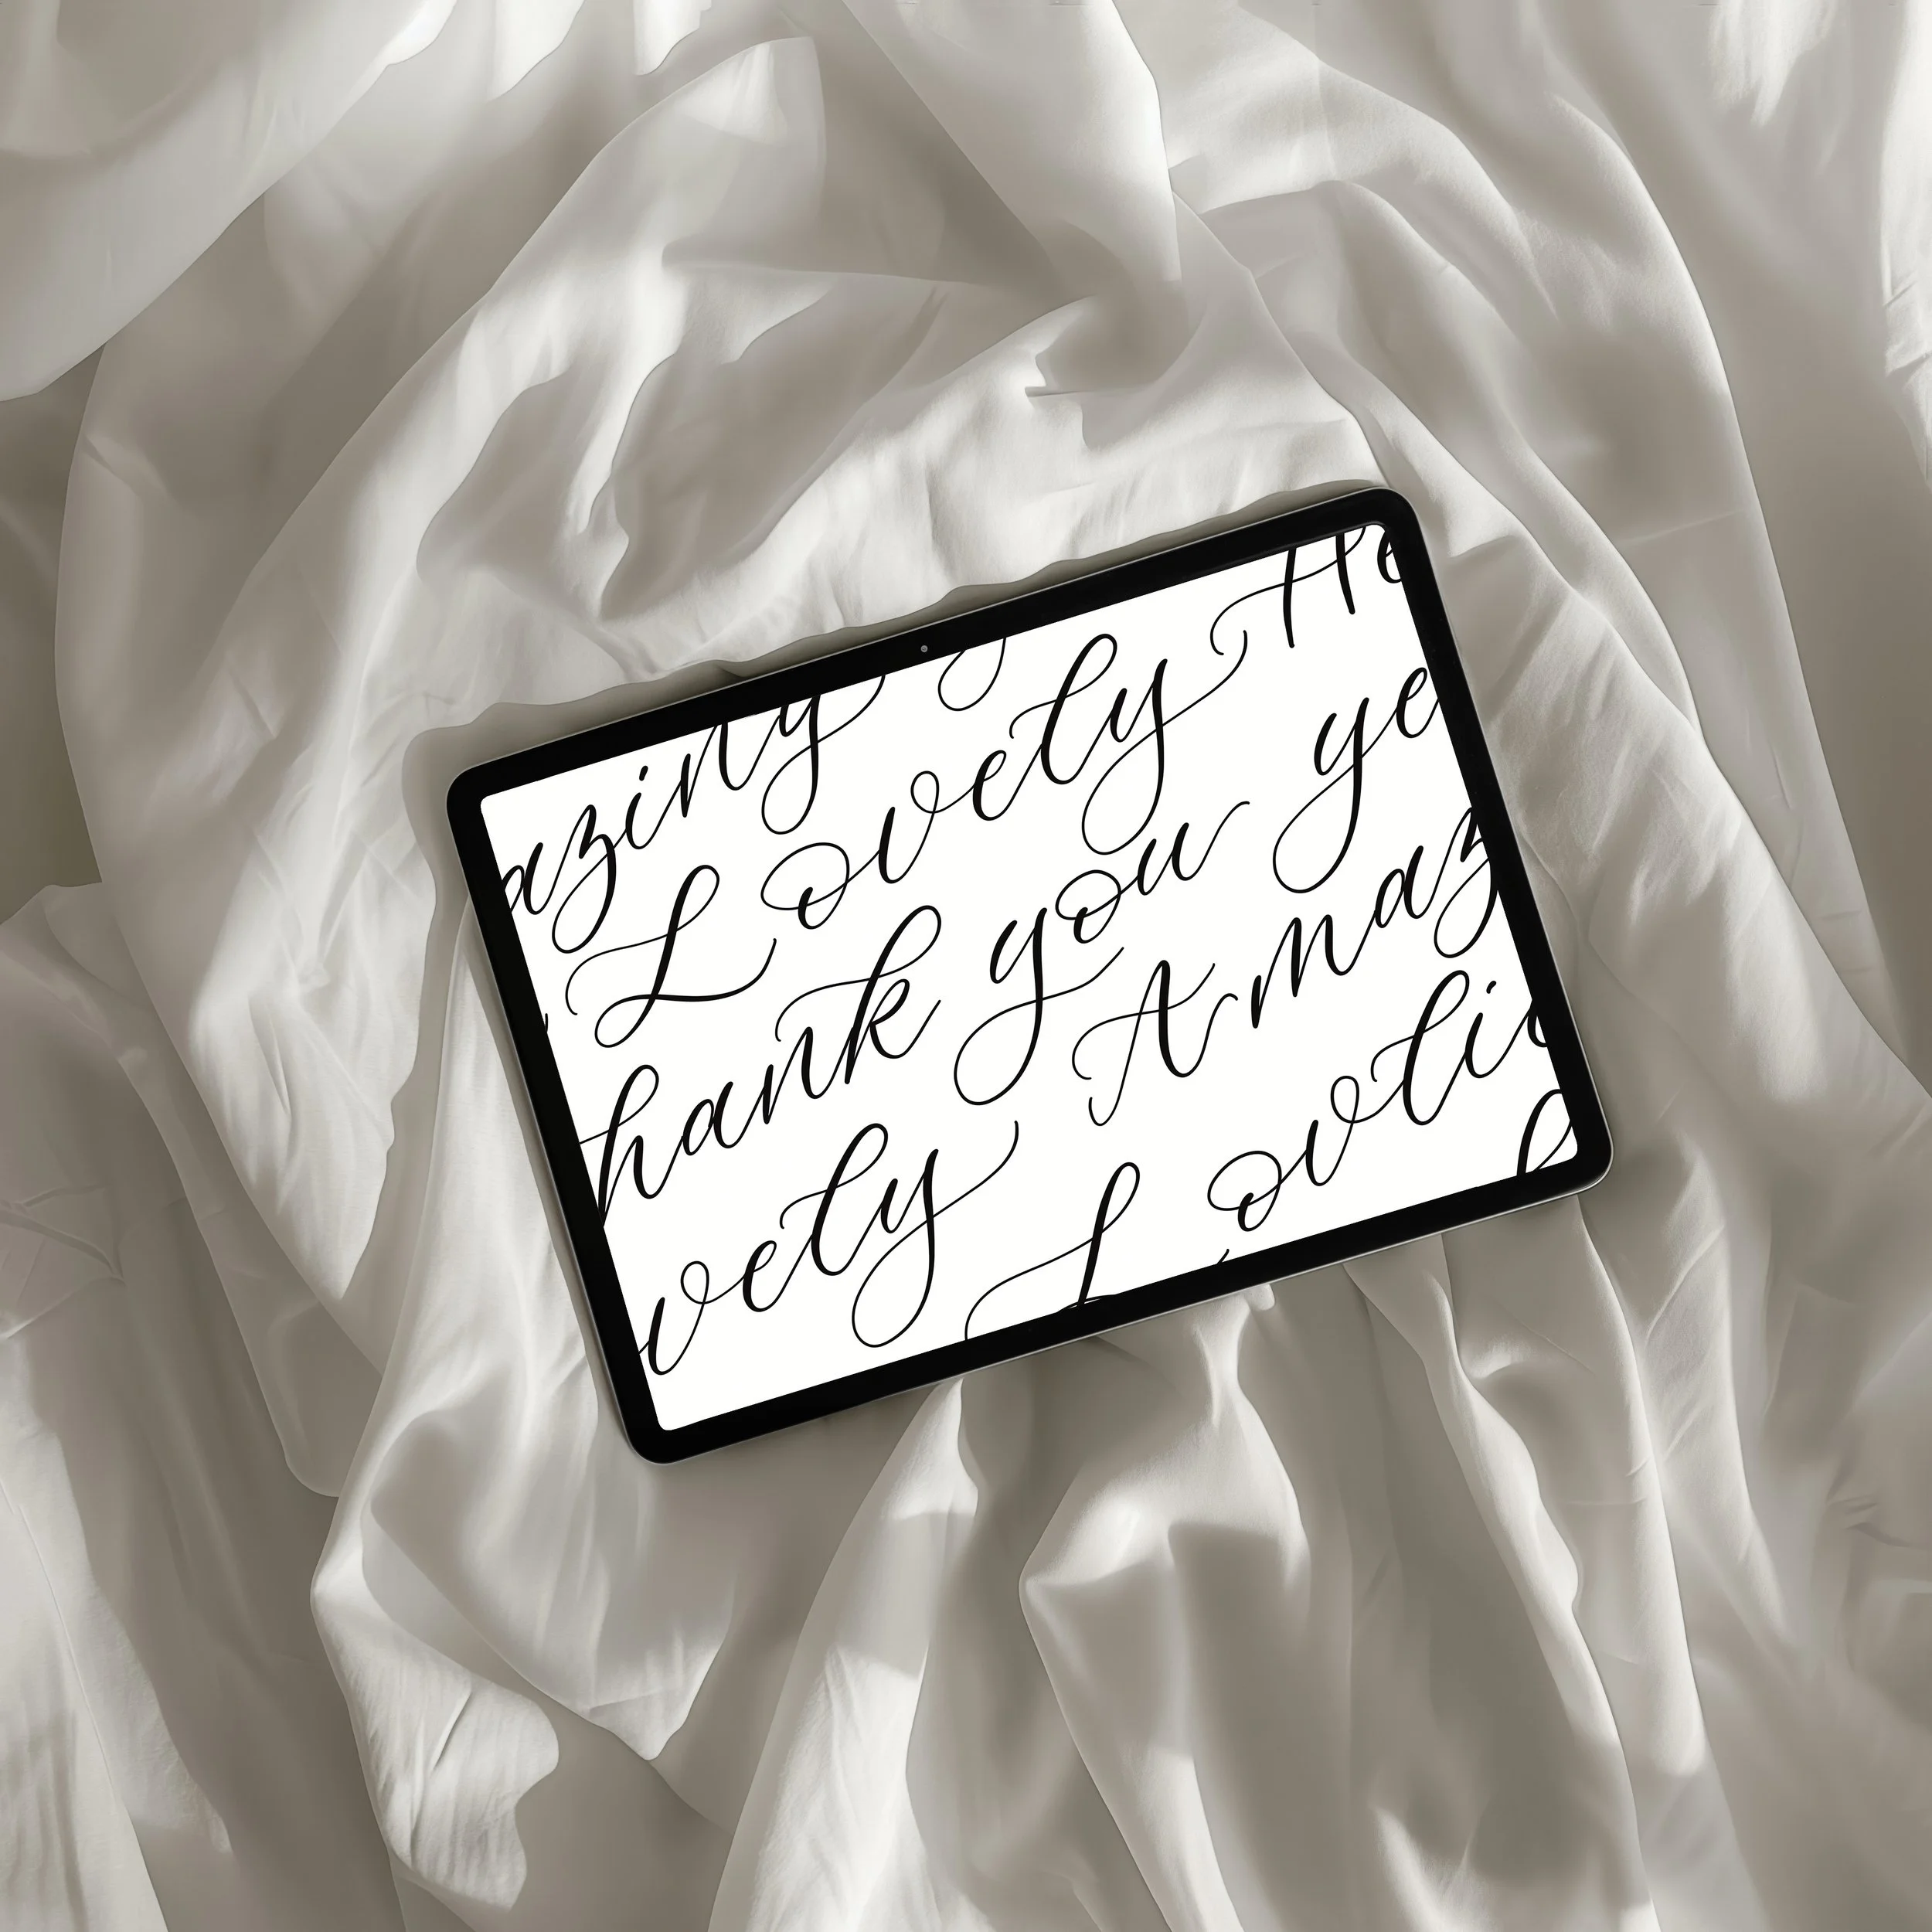 azing
Lovely He
hank you ye
vely Amaz
Lovli